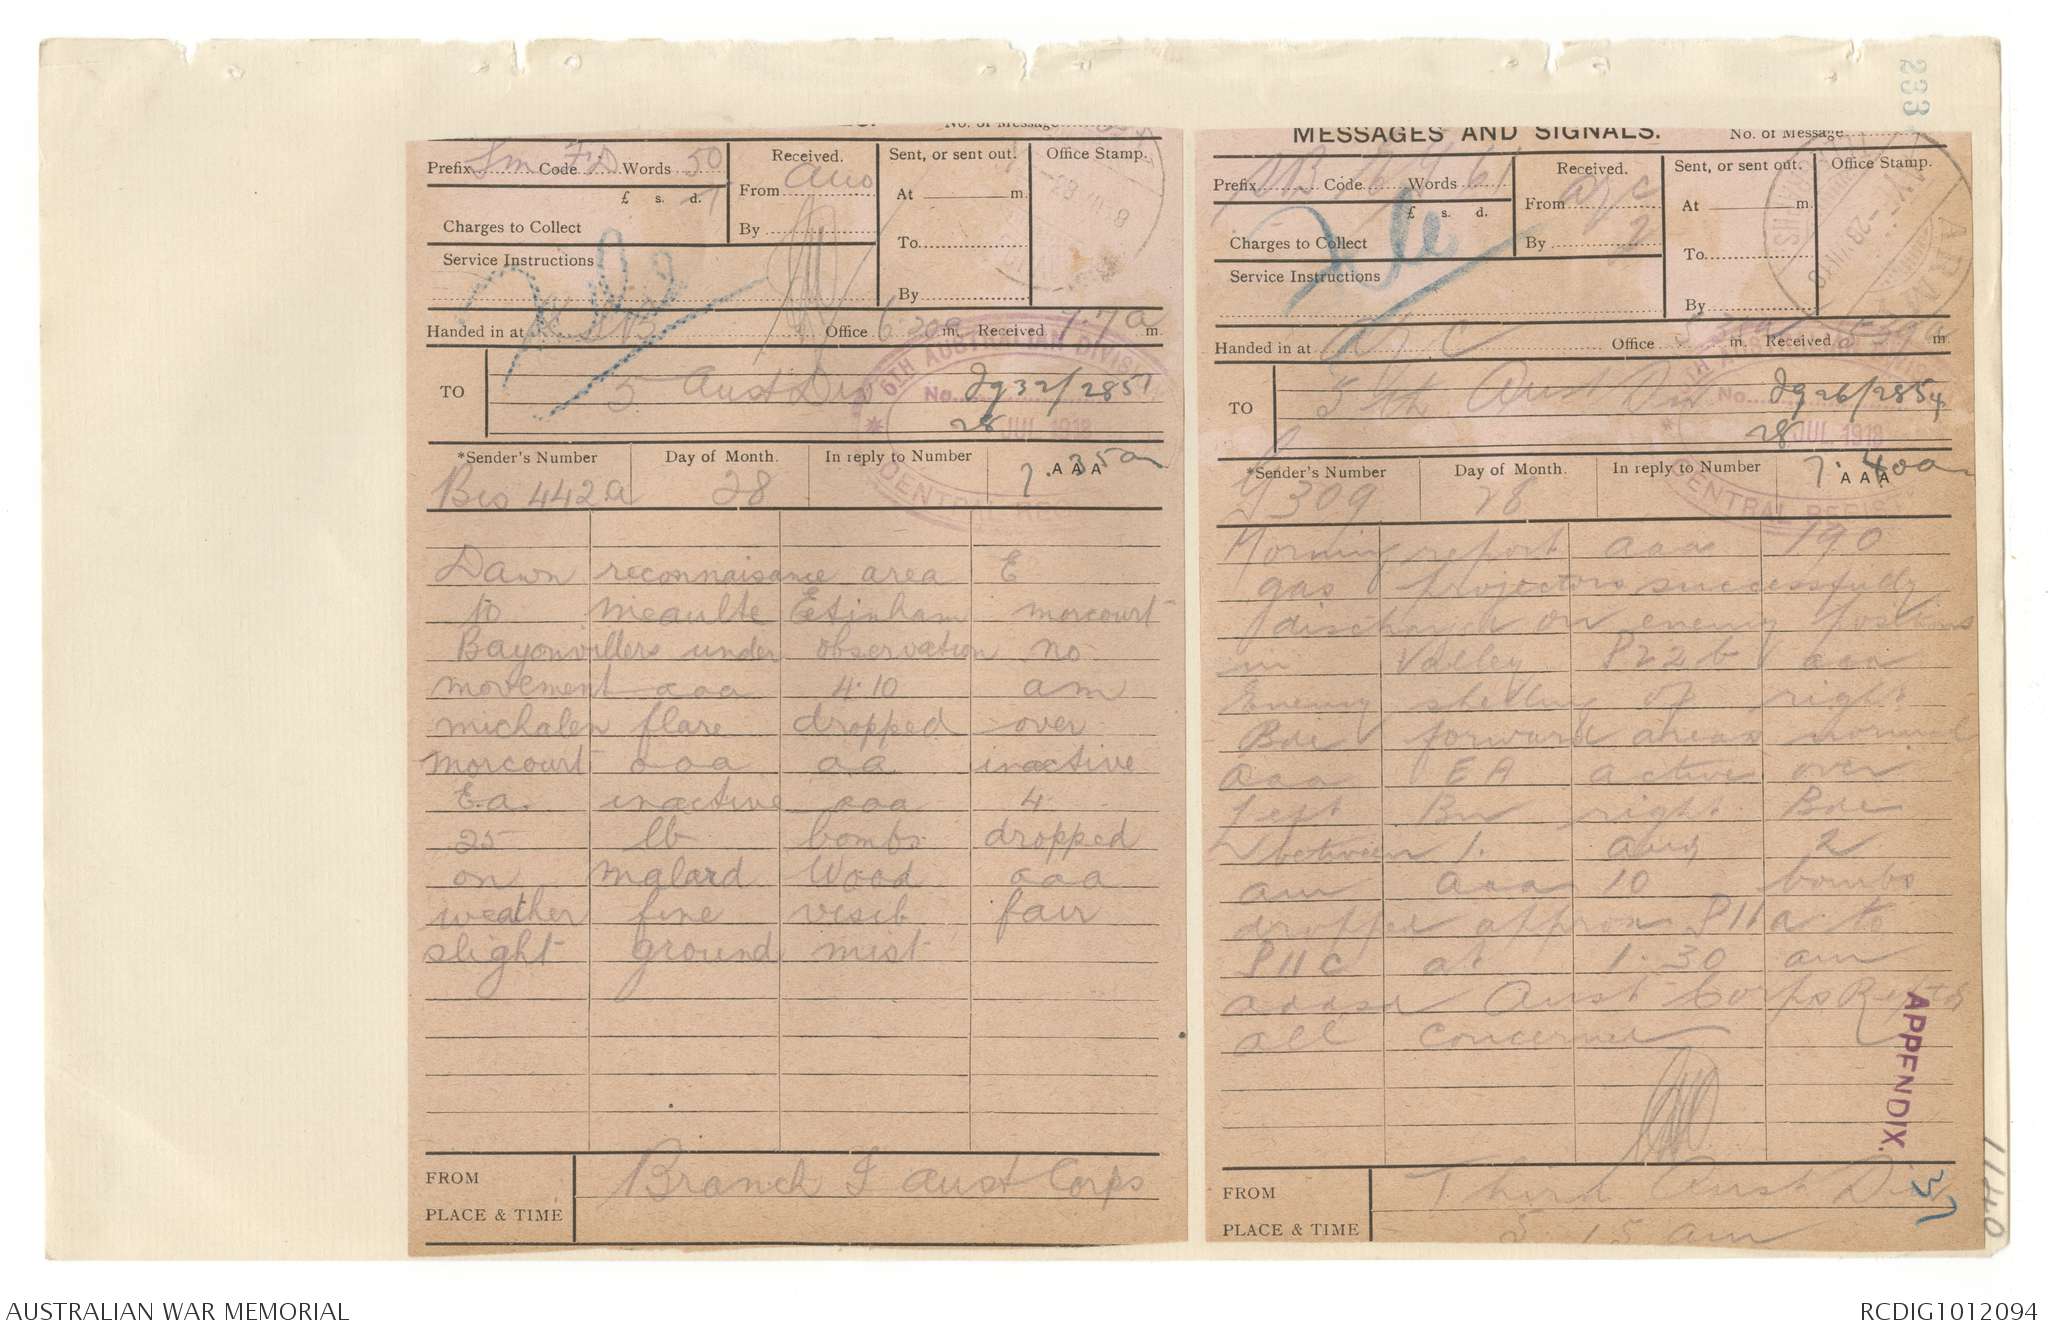 233
No. of Message
Prefix Sm Code FD Words 50
£ s. d.
Charges to Collect
Service Instructions
Received.
From Auo
By
Sent, or sent out.
At m.
To
By
Office Stamp.
Handed in at Office 6 20a m. Received 7.7a m.
TO 5 Aust Div
Ig 32/2851
28
5TH AUSTRALIAN DIVISION
No.
JUL 1918
CENTRAL REGIS
*Sender's Number Day of Month. In reply to Number AAA
Bio 442a 28 7.35a
Dawn reconnaisance area E
to meaulte Etinham morcourt
Bayonvillers under observation no
movement aaa 4.10 am
michalen flare dropped over
Morcourt aaa aa inactive
E.a. inactive aaa 4
25 lb bombs dropped
on Malard Wood aaa
weather fine visib fair
slight ground mist
FROM Branch I Aust Corps
PLACE & TIME
MESSAGES AND SIGNALS. No. of Message
Prefix Code Words 61
£ s. d.
Charges to Collect
Service Instructions
Received.
From
By
Sent, or sent out.
At m.
To
By
Office Stamp.
Handed in at Office m. Received 5 39a m.
TO 5th Aust Div
Ig 26/2854
28
No.
JUL 1918
CENTRAL REGIS
*Sender's Number Day of Month. In reply to Number AAA
G 309 28 7.40a
Morning report aaa 190
gas projectors successfully
discharged on enemy positions
in Valley P22b aaa
Enemy shelling of right
Bde forward areas normal
aaa EA active over
left Bn right Bde
between 1. and 2
am aaa 10 bombs
dropped approx P11a to
P11c at 1.30 am
addsd Aust Corps Reptd
all concerned
APPENDIX.
37
11/40
FROM Third Aust Div
PLACE & TIME 5 15 am
AUSTRALIAN WAR MEMORIAL
RCDIG1012094